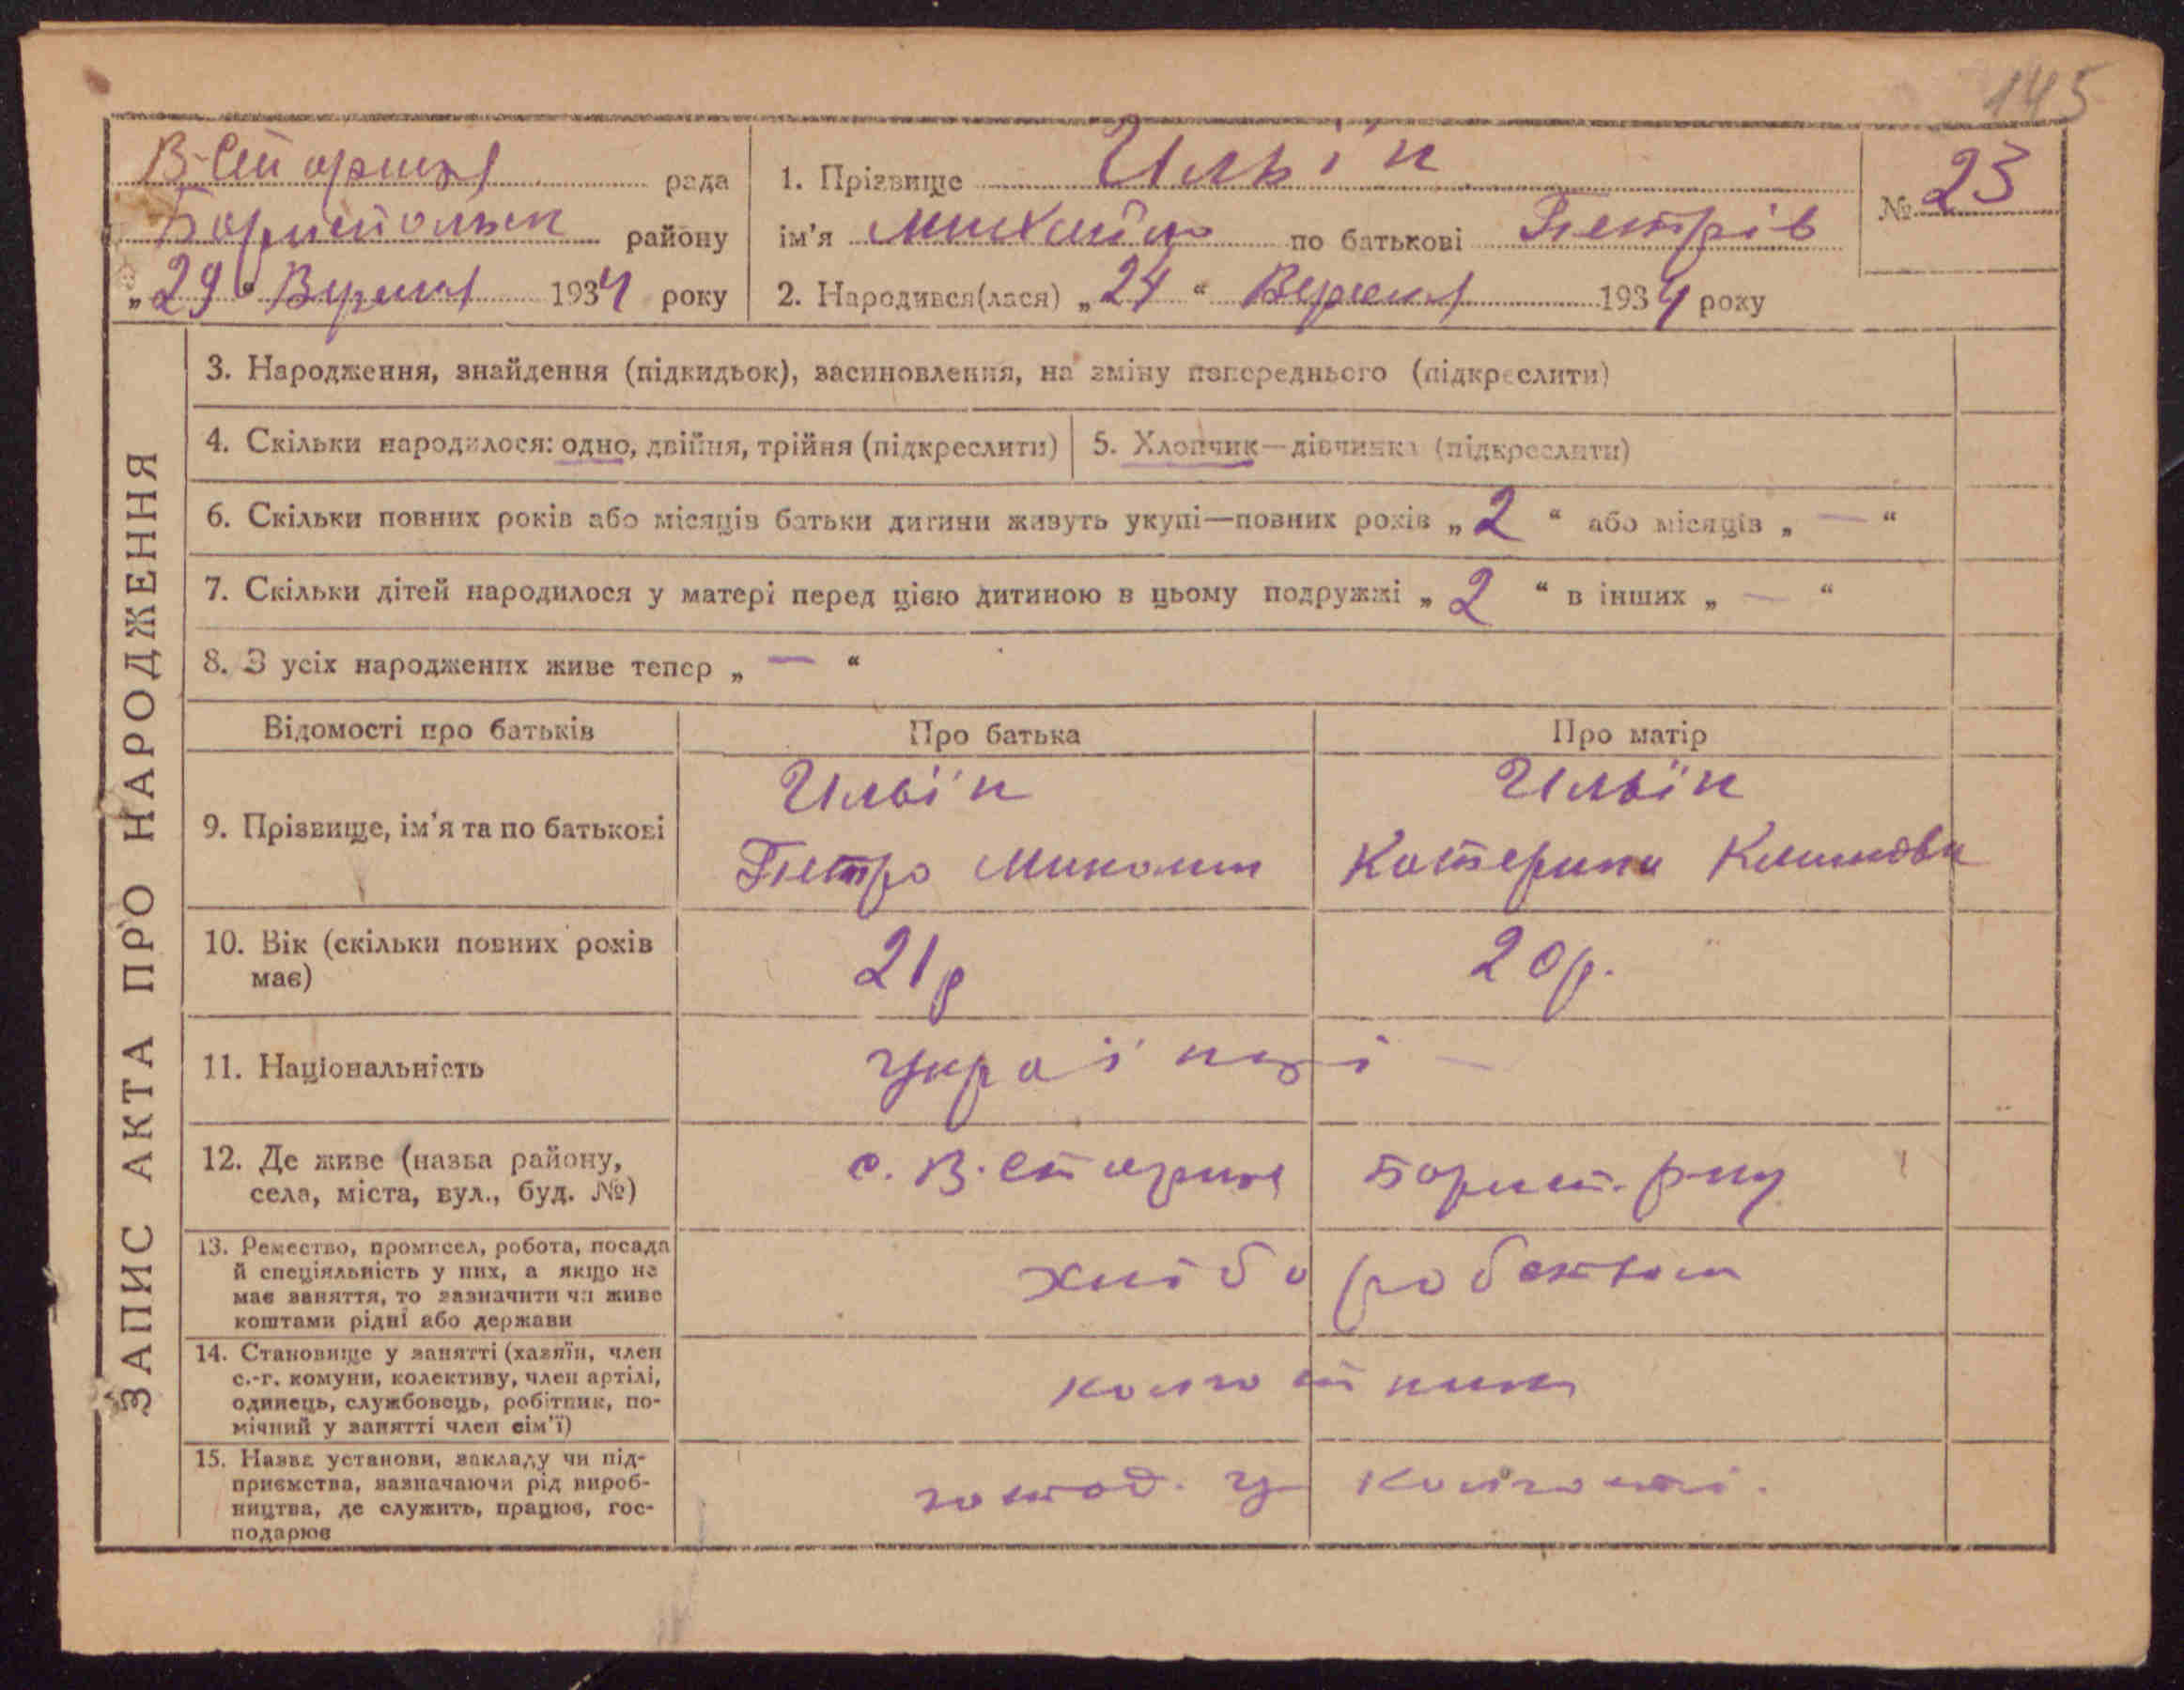 145
В-Старинa рада
Бориспольск району
„29“ Вересня 1934 року
1. Прізвище Ильїн
ім'я Михайло по батькові Петрів
2. Народився(лася) „24“ Вересня 1934 року
№ 23
ЗАПИС АКТА ПРО НАРОДЖЕННЯ
3. Народження, знайдення (підкидьок), засиновлення, на зміну попереднього (підкреслити)
4. Скільки народилося: одно, двійня, трійня (підкреслити)
5. Хлопчик—дівчинка (підкреслити)
6. Скільки повних років або місяців батьки дитини живуть укупі—повних років „2“ або місяців „—“
7. Скільки дітей народилося у матері перед цією дитиною в цьому подружжі „2“ в інших „—“
8. З усіх народжених живе тепер „—“
Відомості про батьків
Про батька
Про матір
9. Прізвище, ім'я та по батькові
Ильїн
Петро Микол
Ильїн
Катерина Климовн
10. Вік (скільки повних років
має)
21р
20р.
11. Національність
українці —
12. Де живе (назва району,
села, міста, вул., буд. №)
с. В. Старинa Борисп. р-ну
13. Ремество, промисел, робота, посада
й спеціяльність у них, а якщо не
має заняття, то зазначити чи живе
коштами рідні або держави
хліборобством
14. Становище у занятті (хазяїн, член
с.-г. комуни, колективу, член артілі,
одинець, службовець, робітник, по-
мічний у занятті член сім'ї)
колгоспник
15. Назва установи, закладу чи під-
приємства, зазначаючи рід вироб-
ництва, де служить, працює, гос-
подарює
господ. у колгоспі.